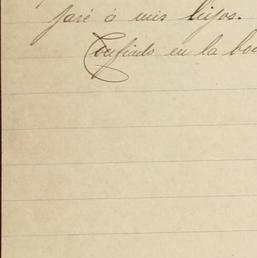 jaré á mis hijos.
Confiado en la bo